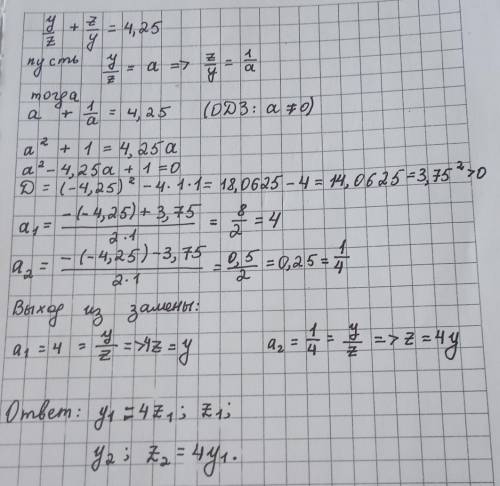 y/z + z/y = 4,25
пусть y/z = a => z/y = 1/a
тогда
a + 1/a = 4,25 (ОДЗ: a ≠ 0)
a² + 1 = 4,25a
a² - 4,25a + 1 = 0
D = (-4,25)² - 4·1·1 = 18,0625 - 4 = 14,0625 = 3,75² > 0
a₁ = (-(-4,25) + 3,75)/(2·1) = 8/2 = 4
a₂ = (-(-4,25) - 3,75)/(2·1) = 0,5/2 = 0,25 = 1/4
Выход из замены:
a₁ = 4 = y/z => 4z = y a₂ = 1/4 = y/z => z = 4y
Ответ: y₁ = 4z₁; z₁;
y₂; z₂ = 4y₁.